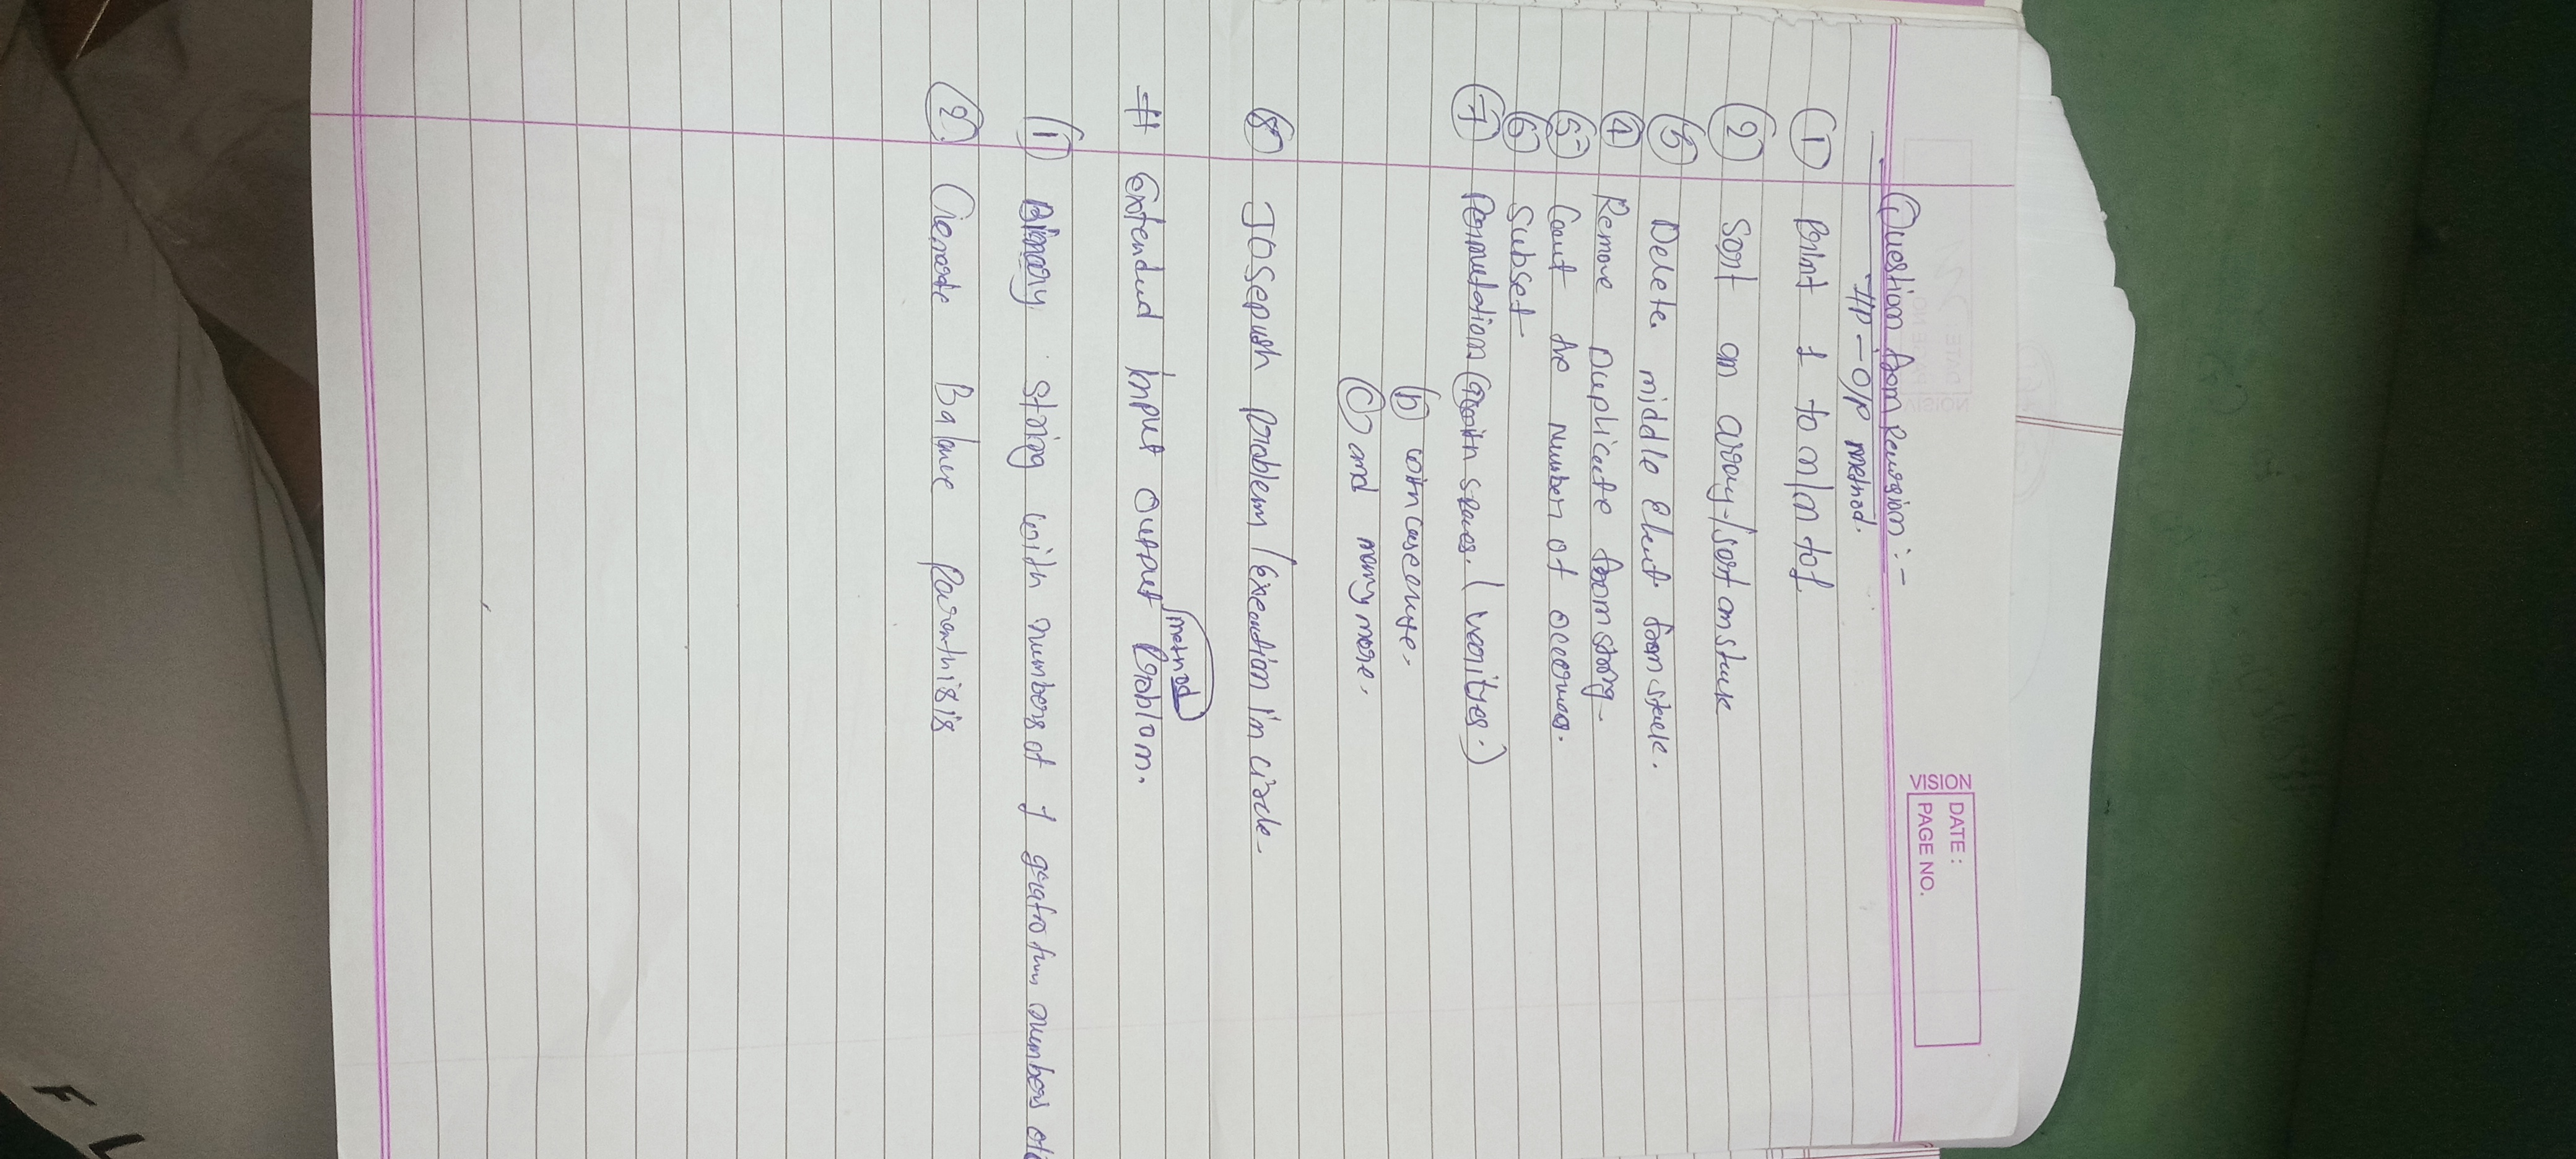 VISION
DATE :
PAGE NO.
Question from Recursion :-
I/P - O/P method.
① Print 1 to n/n to 1.
② Sort an array/sort an stack
③ Delete middle Elemt from stack.
④ Remove Duplicate from string.
⑤ Count the number of occerunce.
⑥ Subset
⑦ Permutation ⓐ with spaces. (varities.)
ⓑ with casechange.
ⓒ and many more.
⑧ Josepush problem / Execution in circle
method
# Extended Input Output Problem.
① Binary string with numbers of 1 greater than numbers of
② Generate Balance Parenthisis